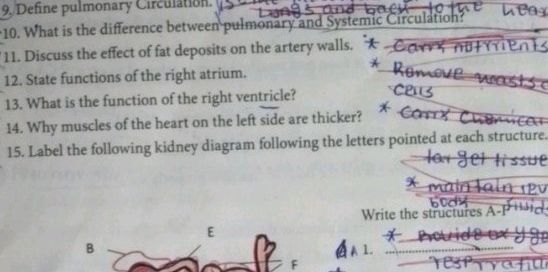 9. Define pulmonary Circulation.
Lungs and back to the hear
10. What is the difference between pulmonary and Systemic Circulation?
11. Discuss the effect of fat deposits on the artery walls. * Carry nutrients
12. State functions of the right atrium. * Remove wasts
13. What is the function of the right ventricle? cells
14. Why muscles of the heart on the left side are thicker? * Carry Chemical
15. Label the following kidney diagram following the letters pointed at each structure.
target tissue
* maintain
body fluids
Write the structures A-F
* Provide oxyge
E
B
A 1.
F
respiratio